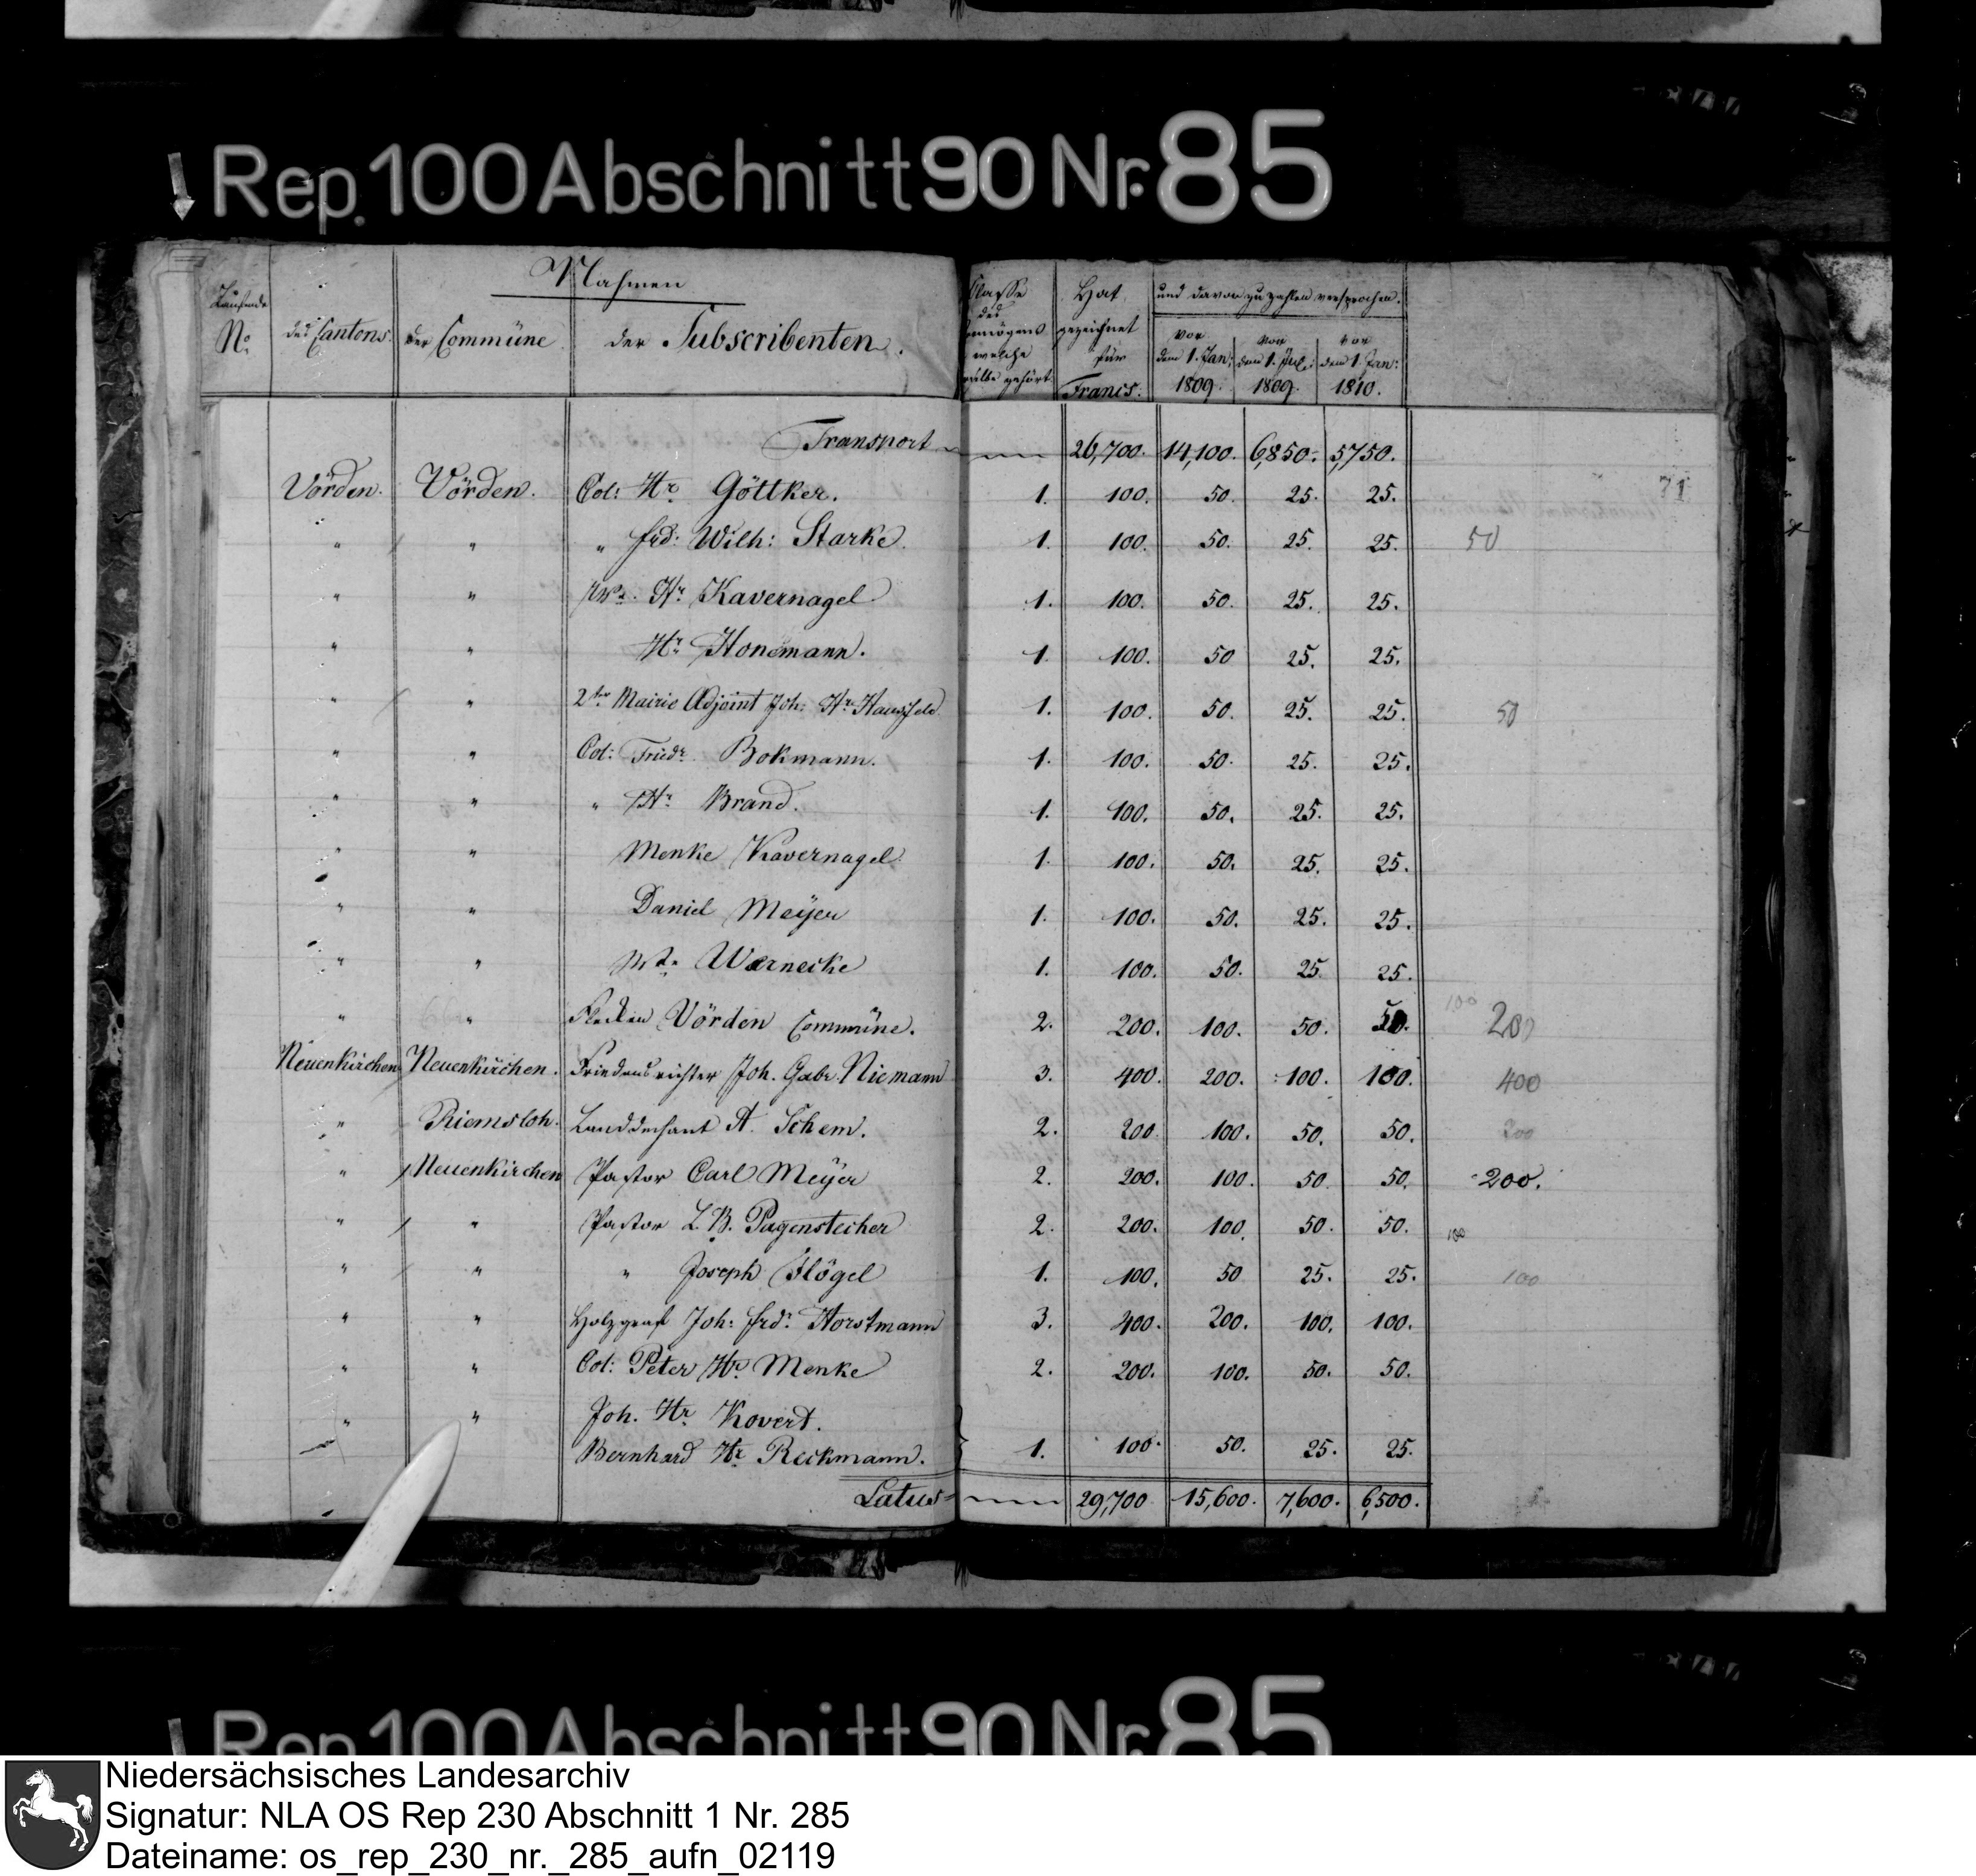 Rep. 100 Abschnitt 90 Nr. 85
Laufende No.
Nahmen
des Cantons. der Commüne der Subscribenten.
Classe des Vermögens welche gehört
Hat gezeichnet für Francs:
und davon zu zahlen versprochen.
vor dem 1. Jan: 1809.
vor dem 1. Jul: 1809.
vor dem 1. Jan: 1810.
Transport 26,700. 14,100. 6,850. 5,750.
71
Vörden. Vörden. Col: Hr. Göttker. 1. 100. 50. 25. 25.
" " " frd: Wilh: Starke. 1. 100. 50. 25. 25. 50
" " Hr. Kavernagel 1. 100. 50. 25. 25.
" " Hr. Honemann. 1. 100. 50 25. 25.
" " 2ter Mairie Adjoint Joh: Hr. Hausfeld 1. 100. 50. 25. 25. 50
" " Col: Friedr. Bokmann. 1. 100. 50. 25. 25.
" " " Hr. Brand. 1. 100. 50. 25. 25.
" " Menke Kavernagel 1. 100. 50. 25. 25.
" " Daniel Meÿer 1. 100. 50. 25. 25.
" " Warnecke 1. 100. 50. 25. 25.
" " Flecken Vörden Commüne. 2. 200. 100. 50. 50. 100 200
Neuenkirchen Neuenkirchen. Friedensrichter Joh. Gabr. Niemann 3. 400. 200. 100. 100. 400
" Riemsloh. Landdechant A. Schem. 2. 200. 100. 50. 50. 200
" Neuenkirchen Pastor Carl Meÿer 2. 200. 100. 50. 50. 200.
" " Pastor L. B. Pagenstecher 2. 200. 100. 50. 50. 100
" " " Joseph Flögel 1. 100. 50 25. 25. 100
" " Holzgraf Joh: frdr. Horstmann 3. 400. 200. 100. 100.
" " Col: Peter Hr. Menke 2. 200. 100. 50. 50.
" " Joh. Hr. Kovert.
Bernhard Hr. Reckmann. 1. 100. 50. 25. 25.
Latus 29,700 15,600. 7,600. 6,500.
Rep. 100 Abschnitt 90 Nr. 85
Niedersächsisches Landesarchiv
Signatur: NLA OS Rep 230 Abschnitt 1 Nr. 285
Dateiname: os_rep_230_nr._285_aufn_02119